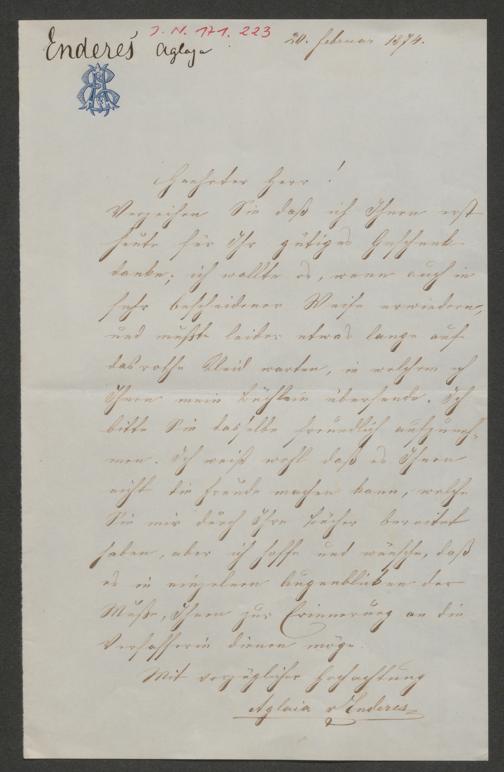 Enderes Aglaja
J. N. 171.223
20. Februar 1874.
Geehrter Herr!
Verzeihen Sie daß ich Ihnen erst
heute für Ihr gütiges Geschenk
danke; ich wollte es, wenn auch in
sehr bescheidener Weise erwiedern,
und mußte leider etwas lange auf
das rothe Kleid warten, in welchem ich
Ihnen mein Büchlein übersende. Ich
bitte Sie dasselbe freundlich aufzuneh-
men. Ich weiß wohl daß es Ihnen
nicht die Freude machen kann, welche
Sie mir durch Ihre Bücher bereitet
haben, aber ich hoffe und wünsche, daß
es in einzelnen Augenblicken der
Muße, Ihnen zur Erinnerung an die
Verfasserin dienen möge.
Mit vorzüglicher Hochachtung
Aglaia v Enderes